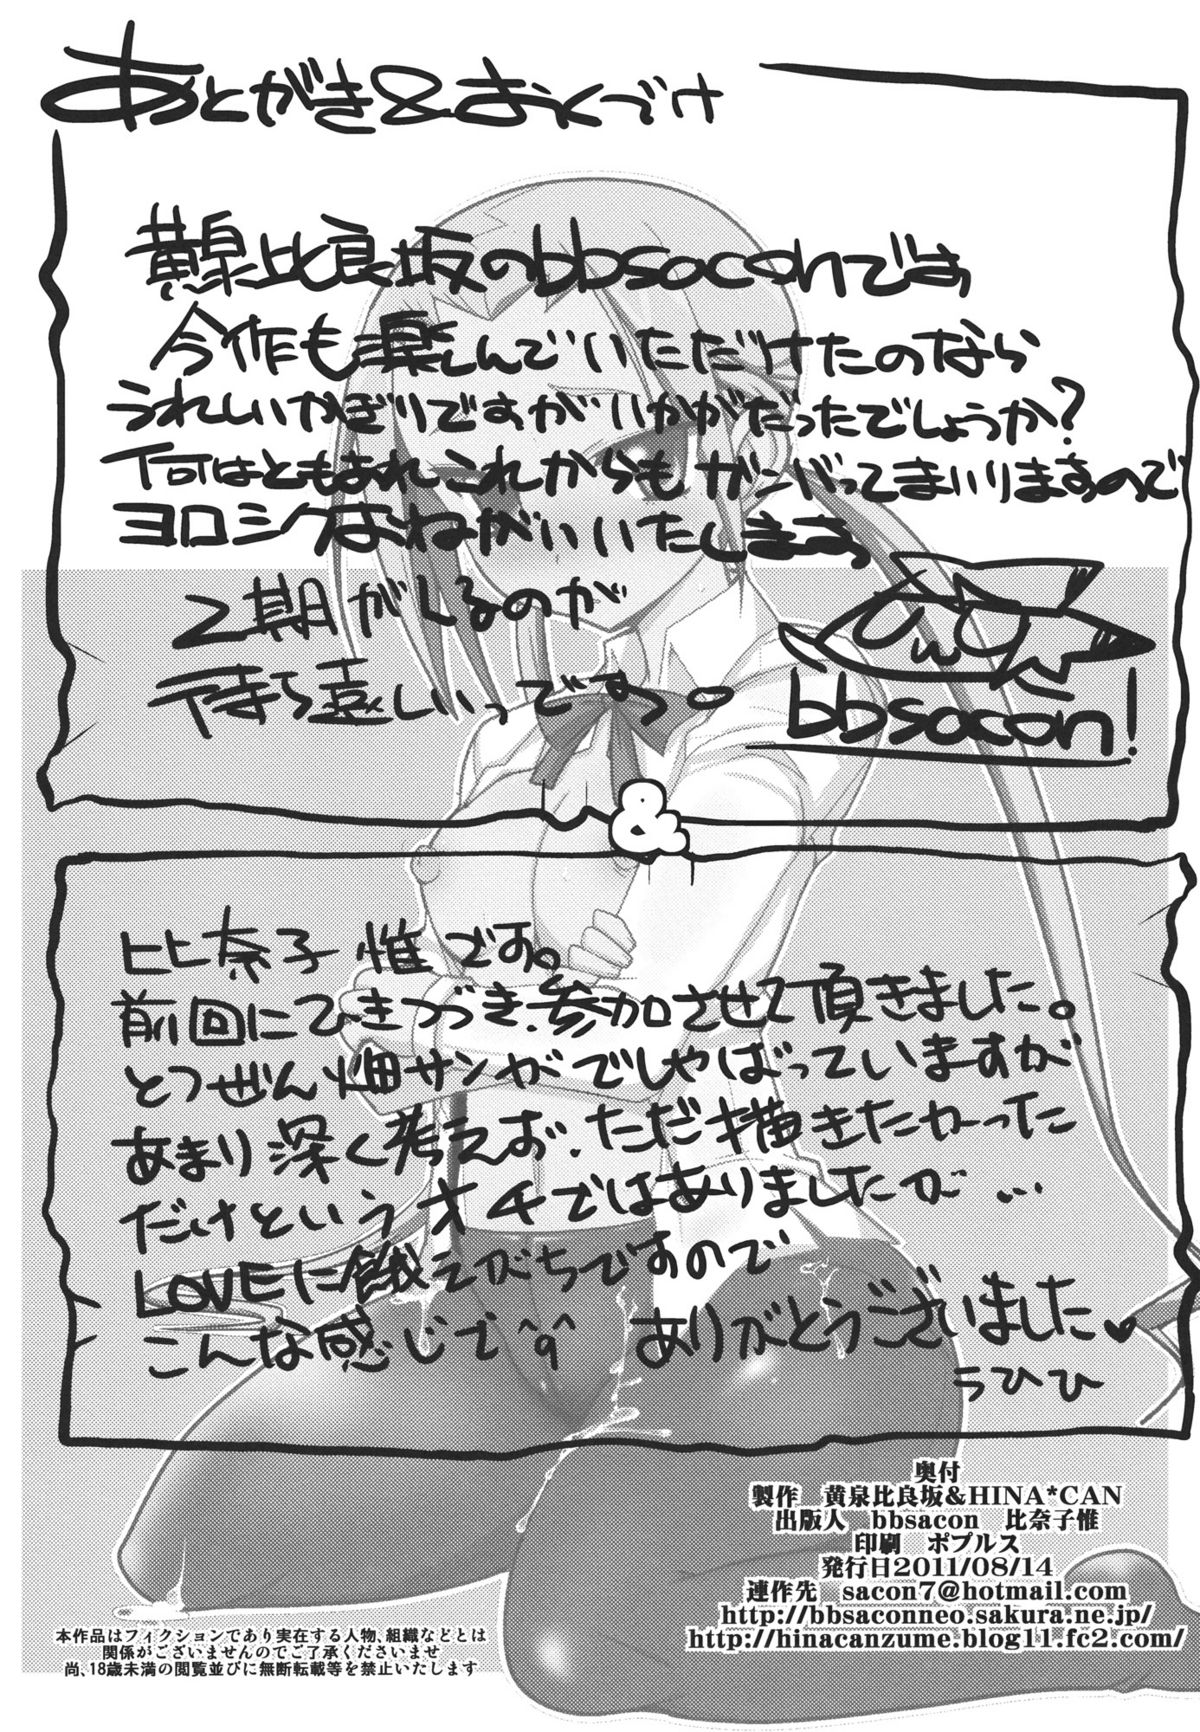 あとがき&おくづけ
黄泉比良坂のbbsaconです
今作も楽しんでいただけたのなら
うれしいかぎりですがいかがだったでしょうか?
何はともあれこれからもガンバってまいりますので
ヨロシクおねがいいたします
2期がくるのが
待ち遠しいっです。
bbsacon!
&
比奈子惟です。
前回にひきつづき、参加させて頂きました。
とつぜん畑サンがでしゃばっていますが
あまり深く考えお、ただ描きたかった
だけというオチではありましたが…
LOVEに餓えがちですので
こんな感じで^q^ ありがとうございました♥
うひひ
奥付
製作 黄泉比良坂&HINA*CAN
出版人 bbsacon 比奈子惟
印刷 ポプルス
発行日2011/08/14
連作先 sacon7@hotmail.com
http://bbsaconneo.sakura.ne.jp/
http://hinacanzume.blog11.fc2.com/
本作品はフィクションであり実在する人物、組織などとは
関係がございませんのでご了承くださいませ
尚、18歳未満の閲覧並びに無断転載等を禁止いたします